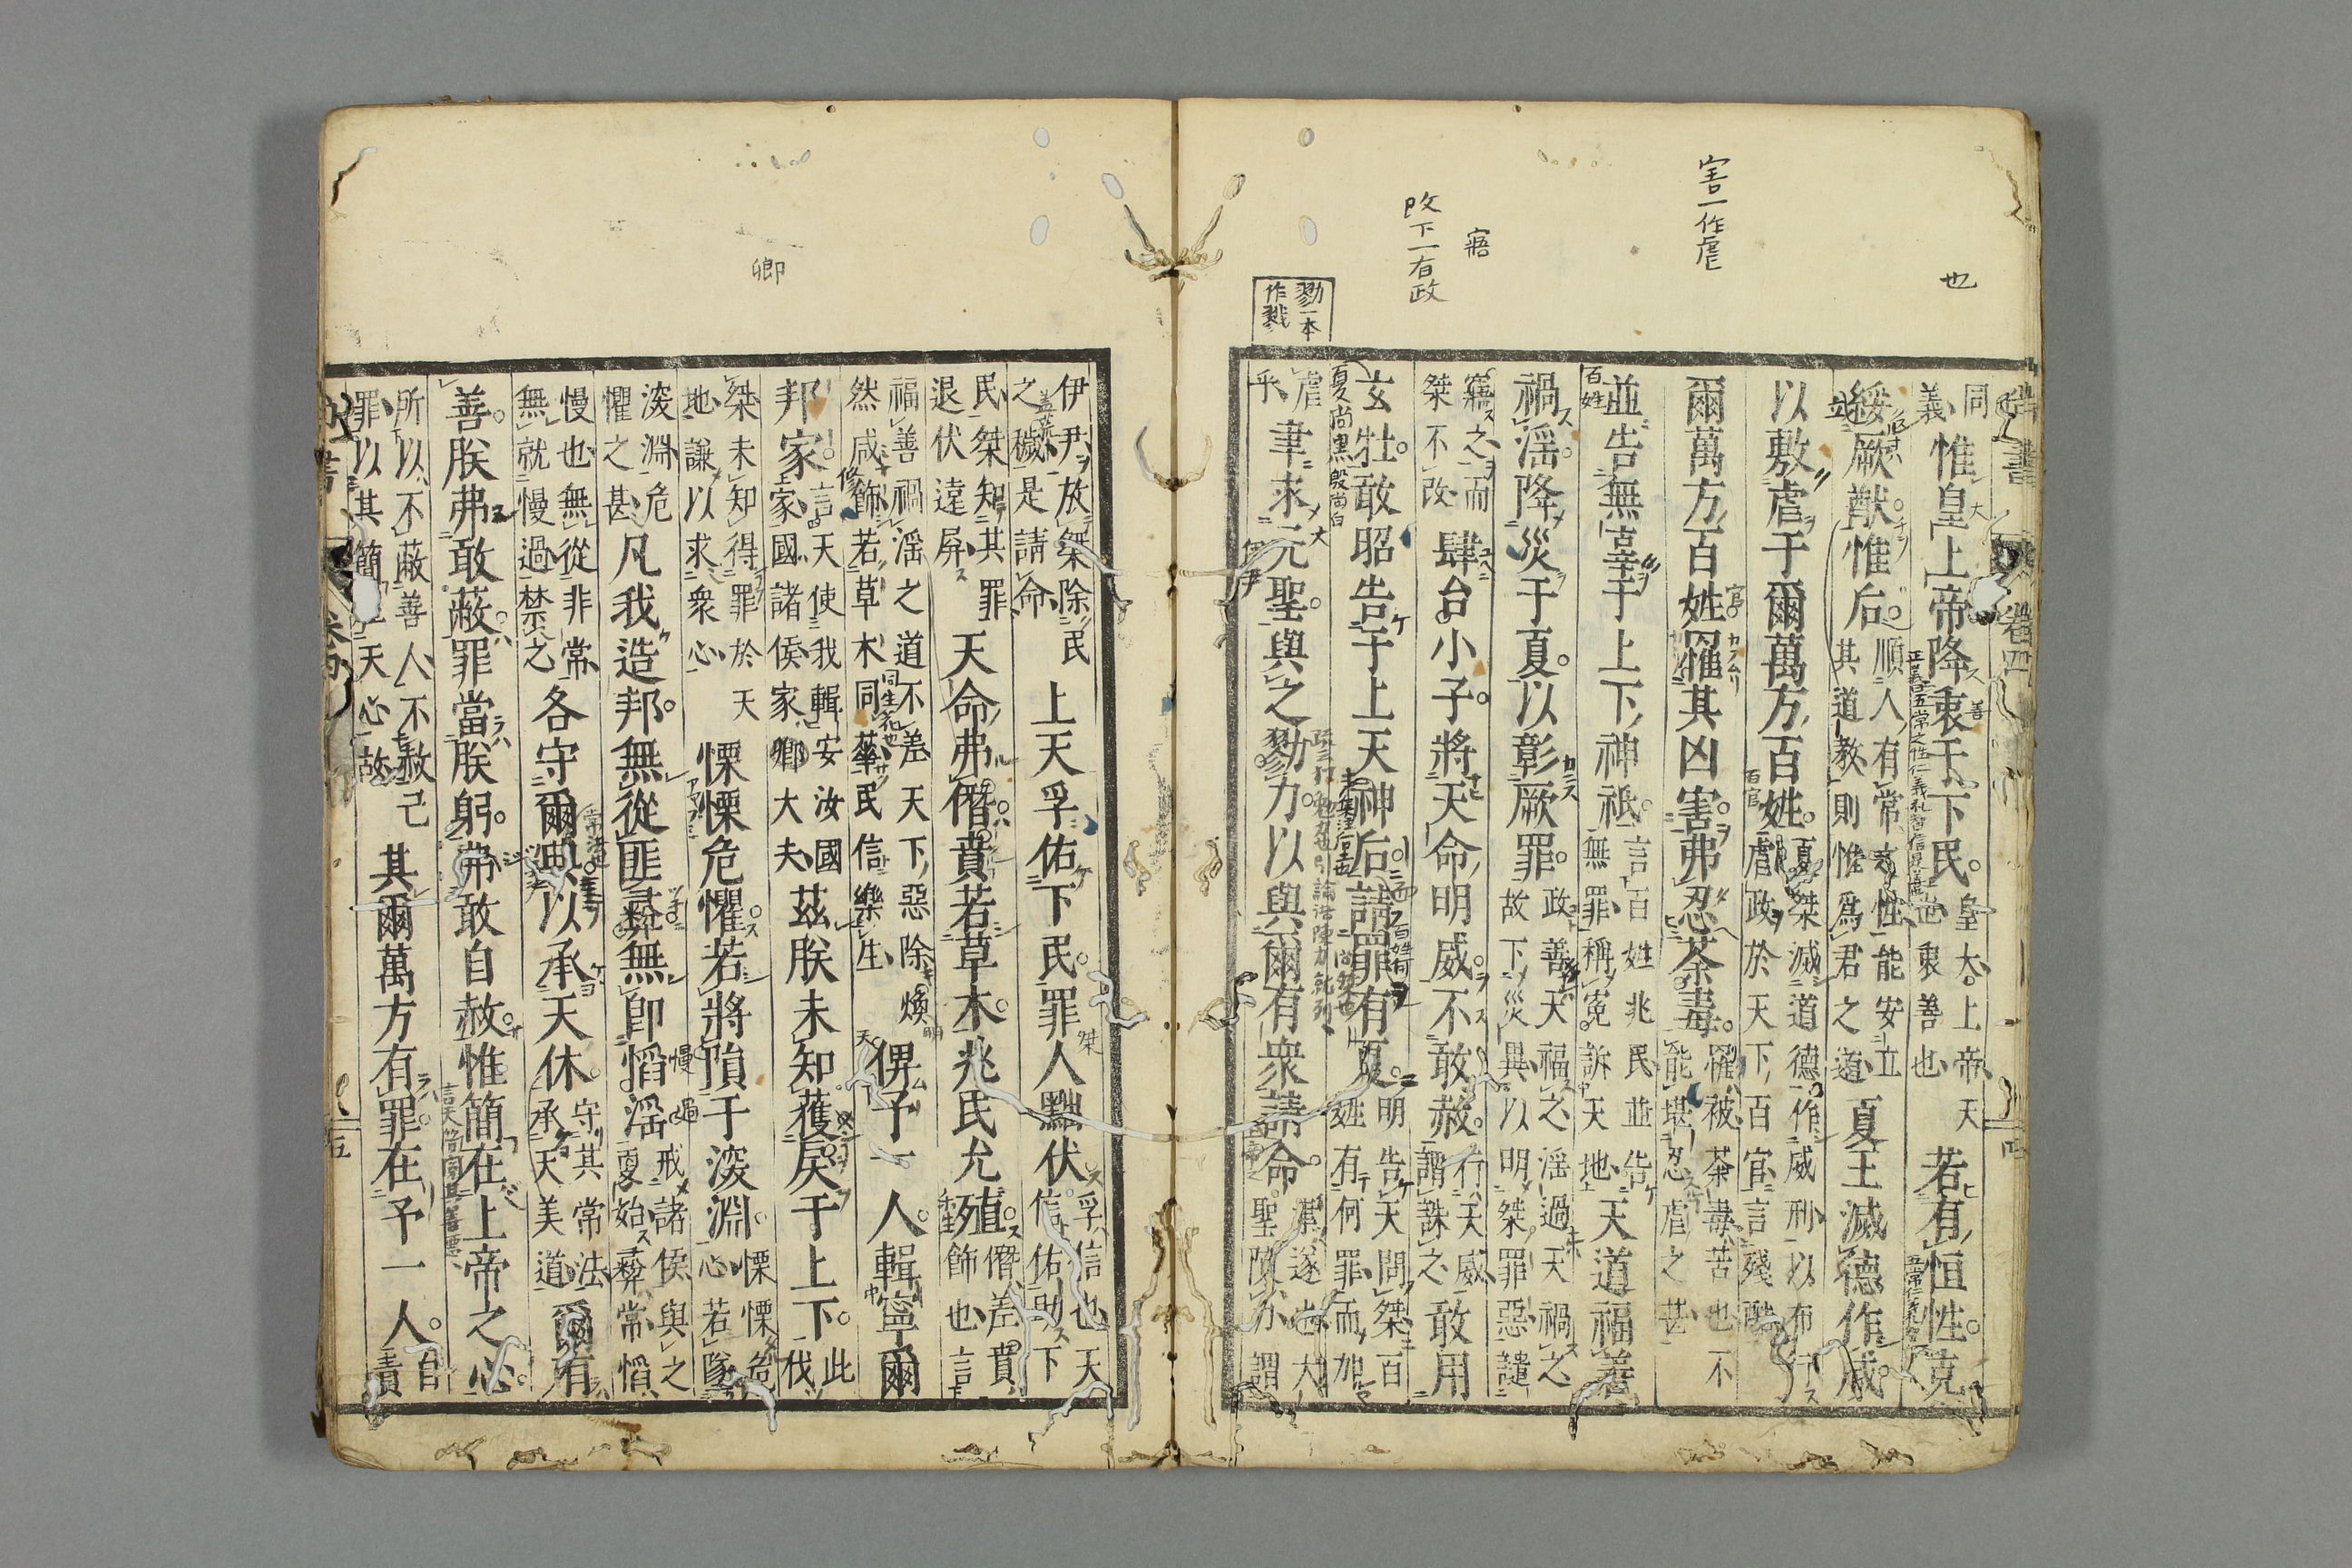 也
害一作虐
寤
改下一有政
勠一本
作戮
同
義
惟皇上帝降衷于下民
皇大上帝天
衷善也
若有恒性克
綏厥猷惟后
順人有常之性能安立
其道教則惟為君之道
夏王滅德作威
以敷虐于爾萬方百姓
夏桀滅道德作威刑以布行
虐政於天下百官言殘酷
爾萬方百姓罹其凶害弗忍荼毒
罹被荼毒苦也不
能堪忍虐之甚
並告無辜于上下神祇
言百姓兆民並告
無罪稱冤訴天地
天道福善
禍淫降災于夏以彰厥罪
政善天福之淫過天禍之
故下災異以明桀罪惡譴
寤之而
桀不改
肆台小子將天命明威不敢赦
行天威
謂誅之
敢用
玄牡敢昭告于上天神后請罪有夏
明告天問桀百
姓有何罪而加
虐
乎
聿求元聖與之勠力以與爾有衆請命
聿遂也大
聖陳力謂
伊尹放桀除民
之穢是請命
上天孚佑下民罪人黜伏
孚信也天
信佑助下
民桀知其罪
退伏遠屏
天命弗僭賁若草木兆民允殖
僭差賁
飾也言
福善禍淫之道不差天下惡除煥
然咸飾若草木同華民信樂生
俾予一人輯寧爾
邦家
言天使我輯安汝國
家國諸侯家卿大夫
茲朕未知獲戾于上下
此
伐
桀未知得罪於天
地謙以求衆心
慄慄危懼若將隕于深淵
慄慄危
心若墜
深淵危
懼之甚
凡我造邦無從匪彝無卽慆淫
戒諸侯與之
夏始彝常慆
慢也無從非常
無就慢過禁之
各守爾典以承天休
守其常法
承天美道
爾有
善朕弗敢蔽罪當朕躬弗敢自赦惟簡在上帝之心
所以不蔽善人不赦己
罪以其簡在天心故
其爾萬方有罪在予一人
自
責
卿